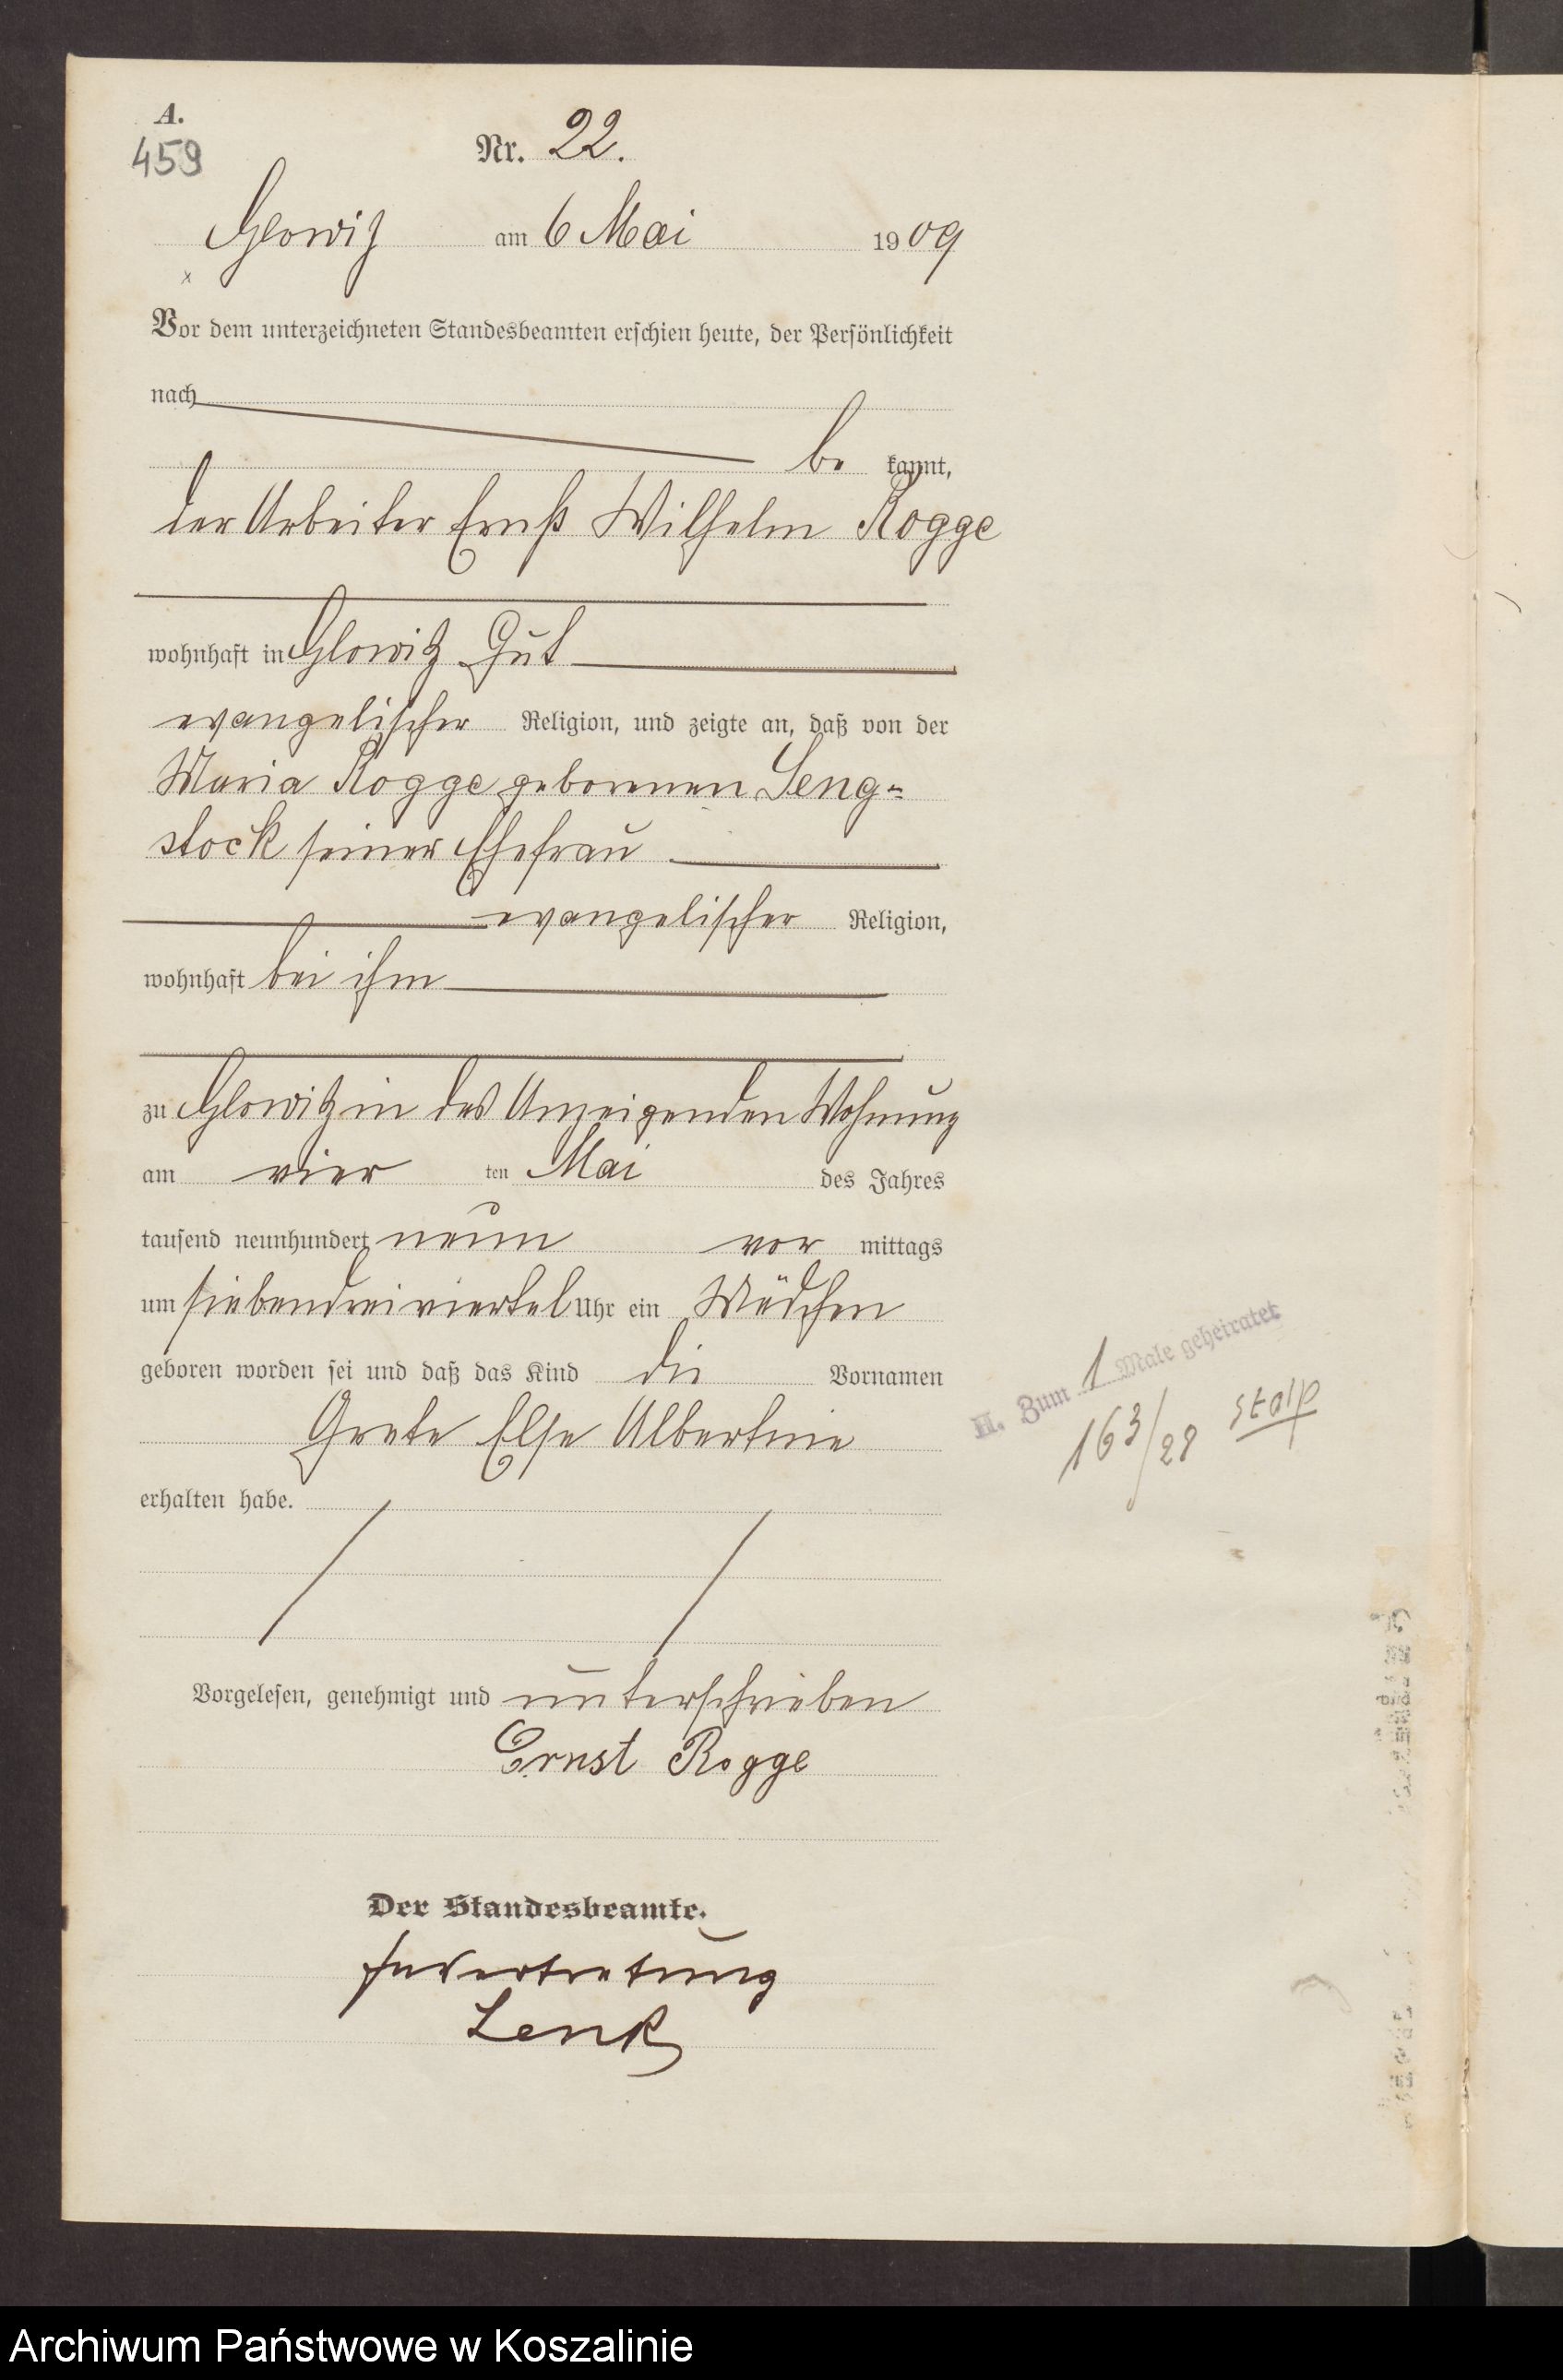 A.
459
Nr. 22.
Glowitz am 6 Mai 1909
Vor dem unterzeichneten Standesbeamten erschien heute, der Persönlichkeit
nach
be kannt,
der Arbeiter Ernst Wilhelm Rogge
wohnhaft in Glowitz Gut
evangelischer Religion, und zeigte an, daß von der
Maria Rogge geborenen Seng-
stock seiner Ehefrau
evangelischer Religion,
wohnhaft bei ihm
zu Glowitz in des Anzeigenden Wohnung
am vier ten Mai des Jahres
tausend neunhundert neun vor mittags
um siebendreiviertel Uhr ein Mädchen
geboren worden sei und daß das Kind die Vornamen
Grete Else Albertine
erhalten habe.
H. Zum 1 Male geheiratet
163/28 Stolp
Vorgelesen, genehmigt und unterschrieben
Ernst Rogge
Der Standesbeamte.
In Vertretung
Lenk
Archiwum Państwowe w Koszalinie